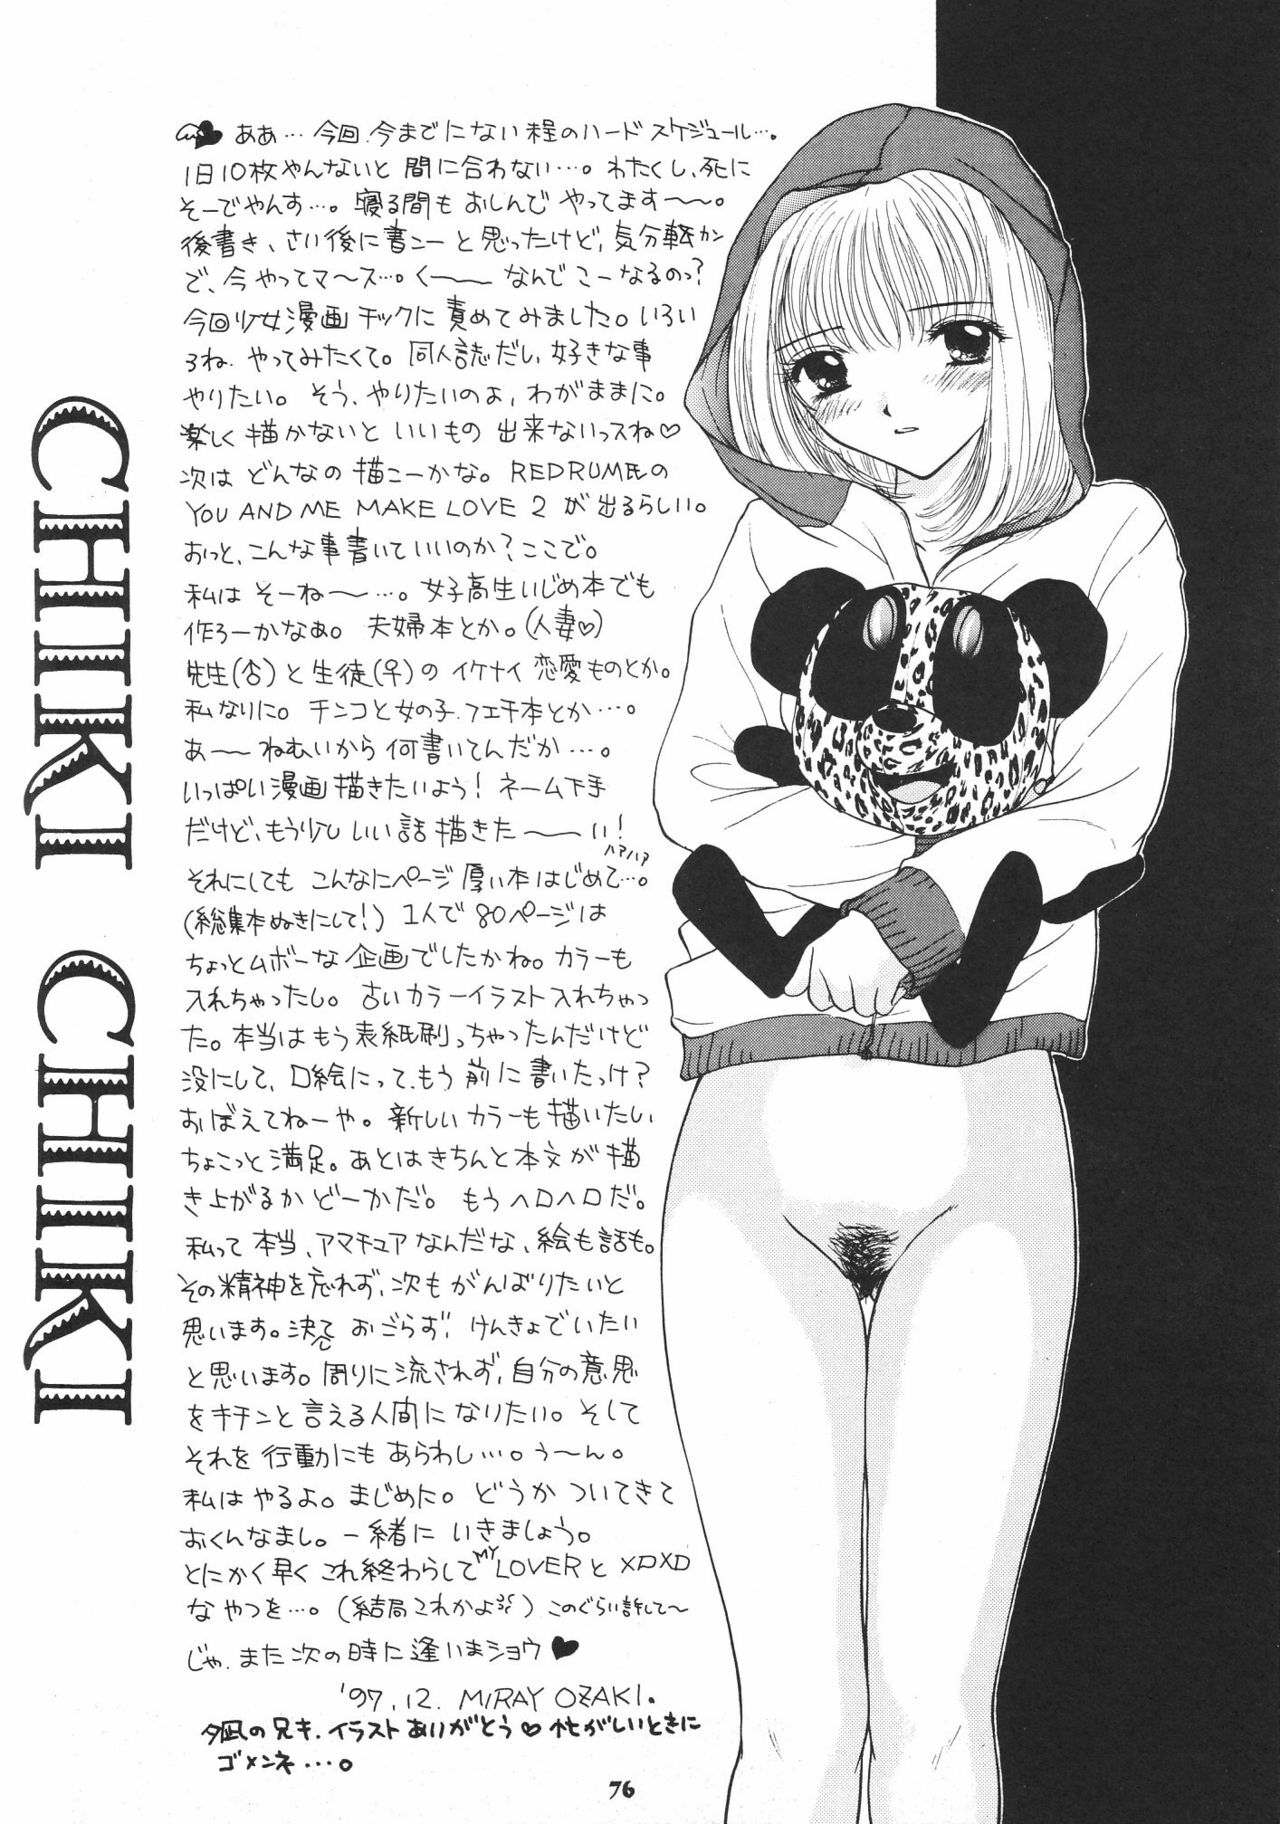 CHIKI CHIKI
ああ…今回.今までにない程のハードスケジュール…。
1日10枚やんないと間に合わない…。わたくし、死に
そーでやんす…。寝る間もおしんでやってます〜〜。
後書き、さい後に書こーと思ったけど、気分転カン
で、今やってマ〜ス…。く〜〜なんでこーなるのっ?
今回少女漫画チックに責めてみました。いろい
ろね、やってみたくて。同人誌だし、好きな事
やりたい。そう、やりたいのよ、わがままに。
楽しく描かないといいもの出来ないっスね♡
次はどんなの描こーかな。REDRUM氏の
YOU AND ME MAKE LOVE 2 が出るらしい。
おっと、こんな事書いていいのか?ここで。
私はそーね〜…。女子高生いじめ本でも
作ろーかなぁ。夫婦本とか。(人妻♡)
先生(♂)と生徒(♀)のイケナイ恋愛ものとか。
私なりに。チンコと女の子.フェチ本とか…。
あ〜〜ねむいから何書いてんだか…。
いっぱい漫画描きたいよう!ネーム下手
だけど、もう少しいい話描きた〜〜い!
ハァハァ
それにしてもこんなにページ厚い本はじめて…。
(総集本ぬきにして!)1人で80ページは
ちょっとムボーな企画でしたかね。カラーも
入れちゃったし。古いカラーイラスト入れちゃっ
た。本当はもう表紙刷っちゃったんだけど
没にして、口絵にって、もう前に書いたっけ?
おぼえてねーや。新しいカラーも描いたしい
ちょこっと満足。あとはきちんと本文が描
き上がるかどーかだ。もうヘロヘロだ。
私って本当、アマチュアなんだな、絵も話も。
その精神を忘れず、次もがんばりたいと
思います。決しておごらず、けんきょでいたい
と思います。周りに流されず、自分の意思
をキチンと言える人間になりたい。そして
それを行動にもあらわし…。う〜ん。
私はやるよ。まじめに。どうかついてきて
おくんなまし。一緒にいきましょう。
とにかく早くこれ終わらしてMY LOVERと×□×□
なやつを…。(結局これかよ)このぐらい許して〜
じゃ、また次の時に逢いまショウ♥
'97.12. MIRAY OZAKI.
夕凪の兄キ、イラストありがとう♡忙がしいときに
ゴメンネ…。
76